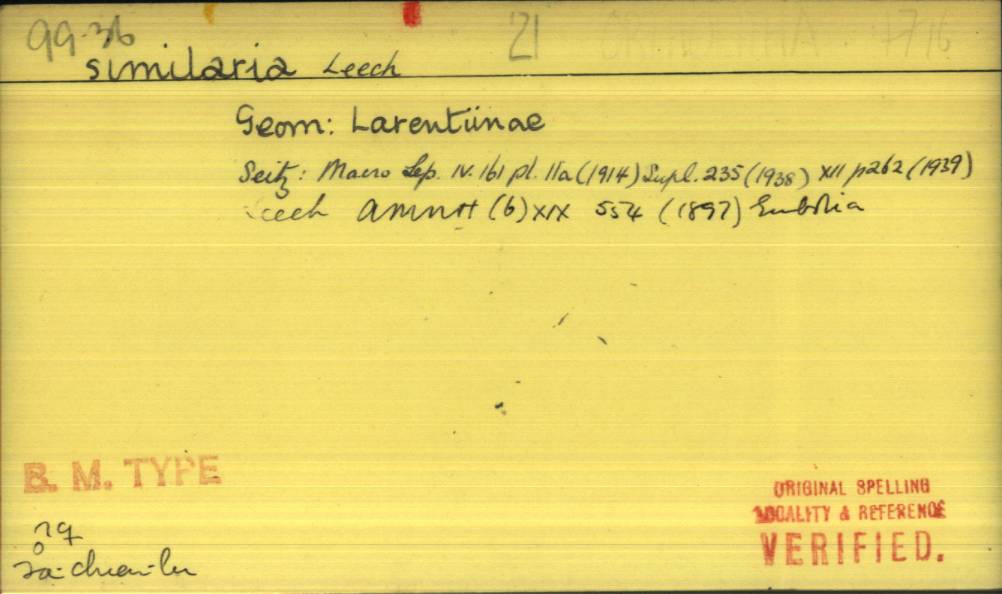 99-36
21
similaria Leech
Geom: Larentiinae
Seitz: Macro Lep. IV. 161 pl. 11a (1914) Supl. 235 (1938) XII p262 (1939)
Leech AMNH (6) XIX 554 (1897) Eubolia
B. M. TYPE
ORIGINAL SPELLING
LOCALITY & REFERENCE
VERIFIED.
Ta-chien-lu